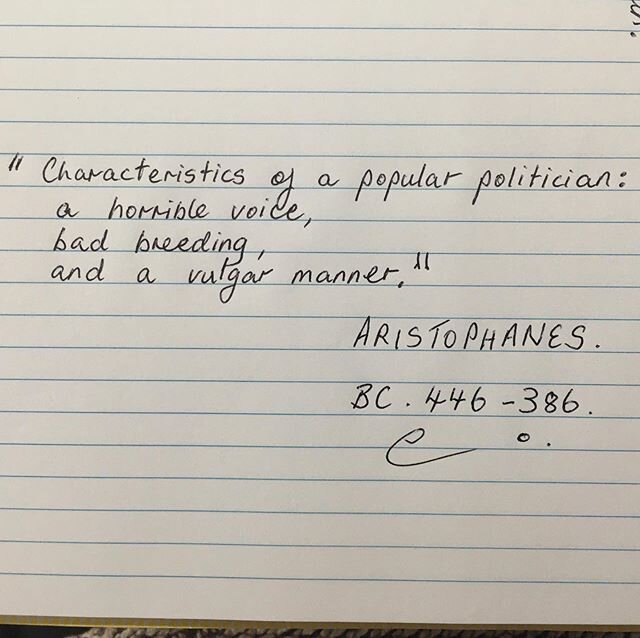 " Characteristics of a popular politician:
a horrible voice,
bad breeding,
and a vulgar manner."
ARISTOPHANES.
BC. 446-386.